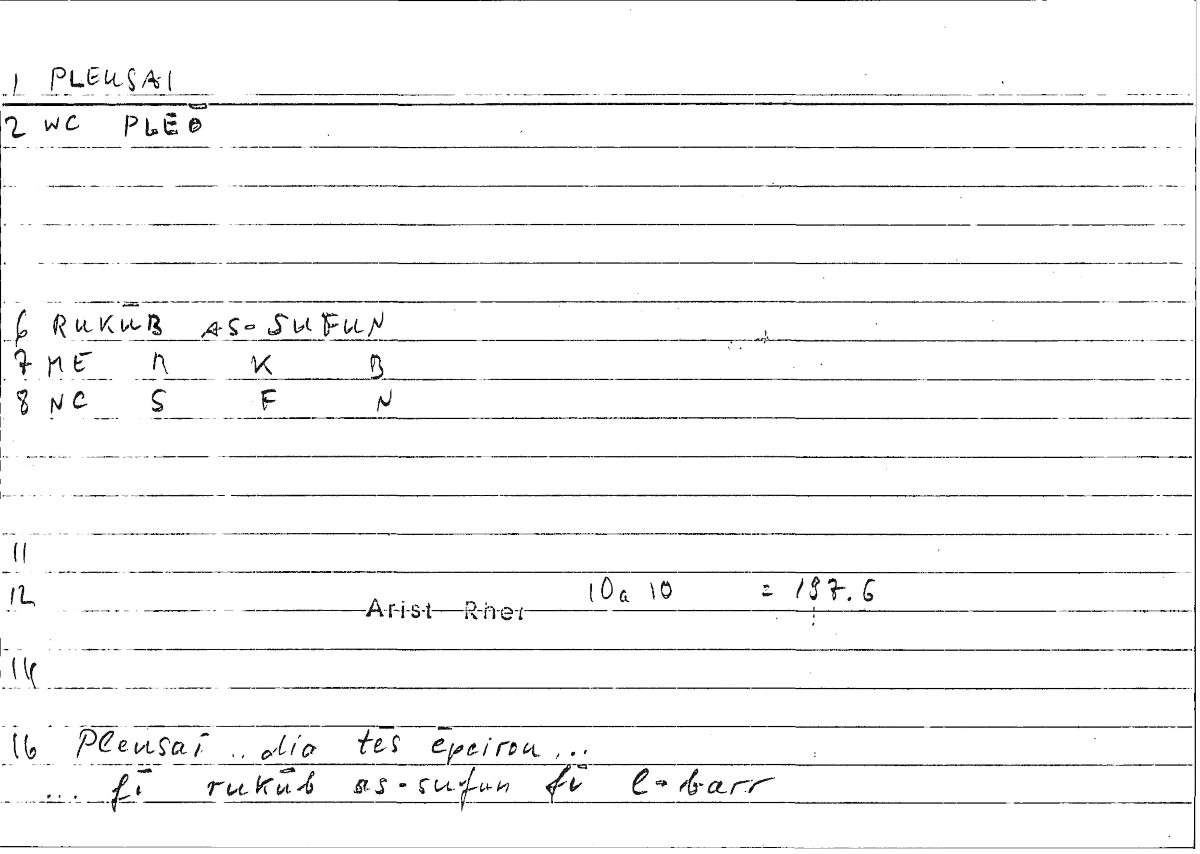 1 PLEUSAI
2 WC PLEŌ
6 RUKŪB AS-SUFUN
7 ME R K B
8 NC S F N
11
12 Arist Rhet 10a 10 = 197.6
14
16 Pleusai .. dia tēs ēpeirou ...
... fī rukūb as-sufun fī l-barr